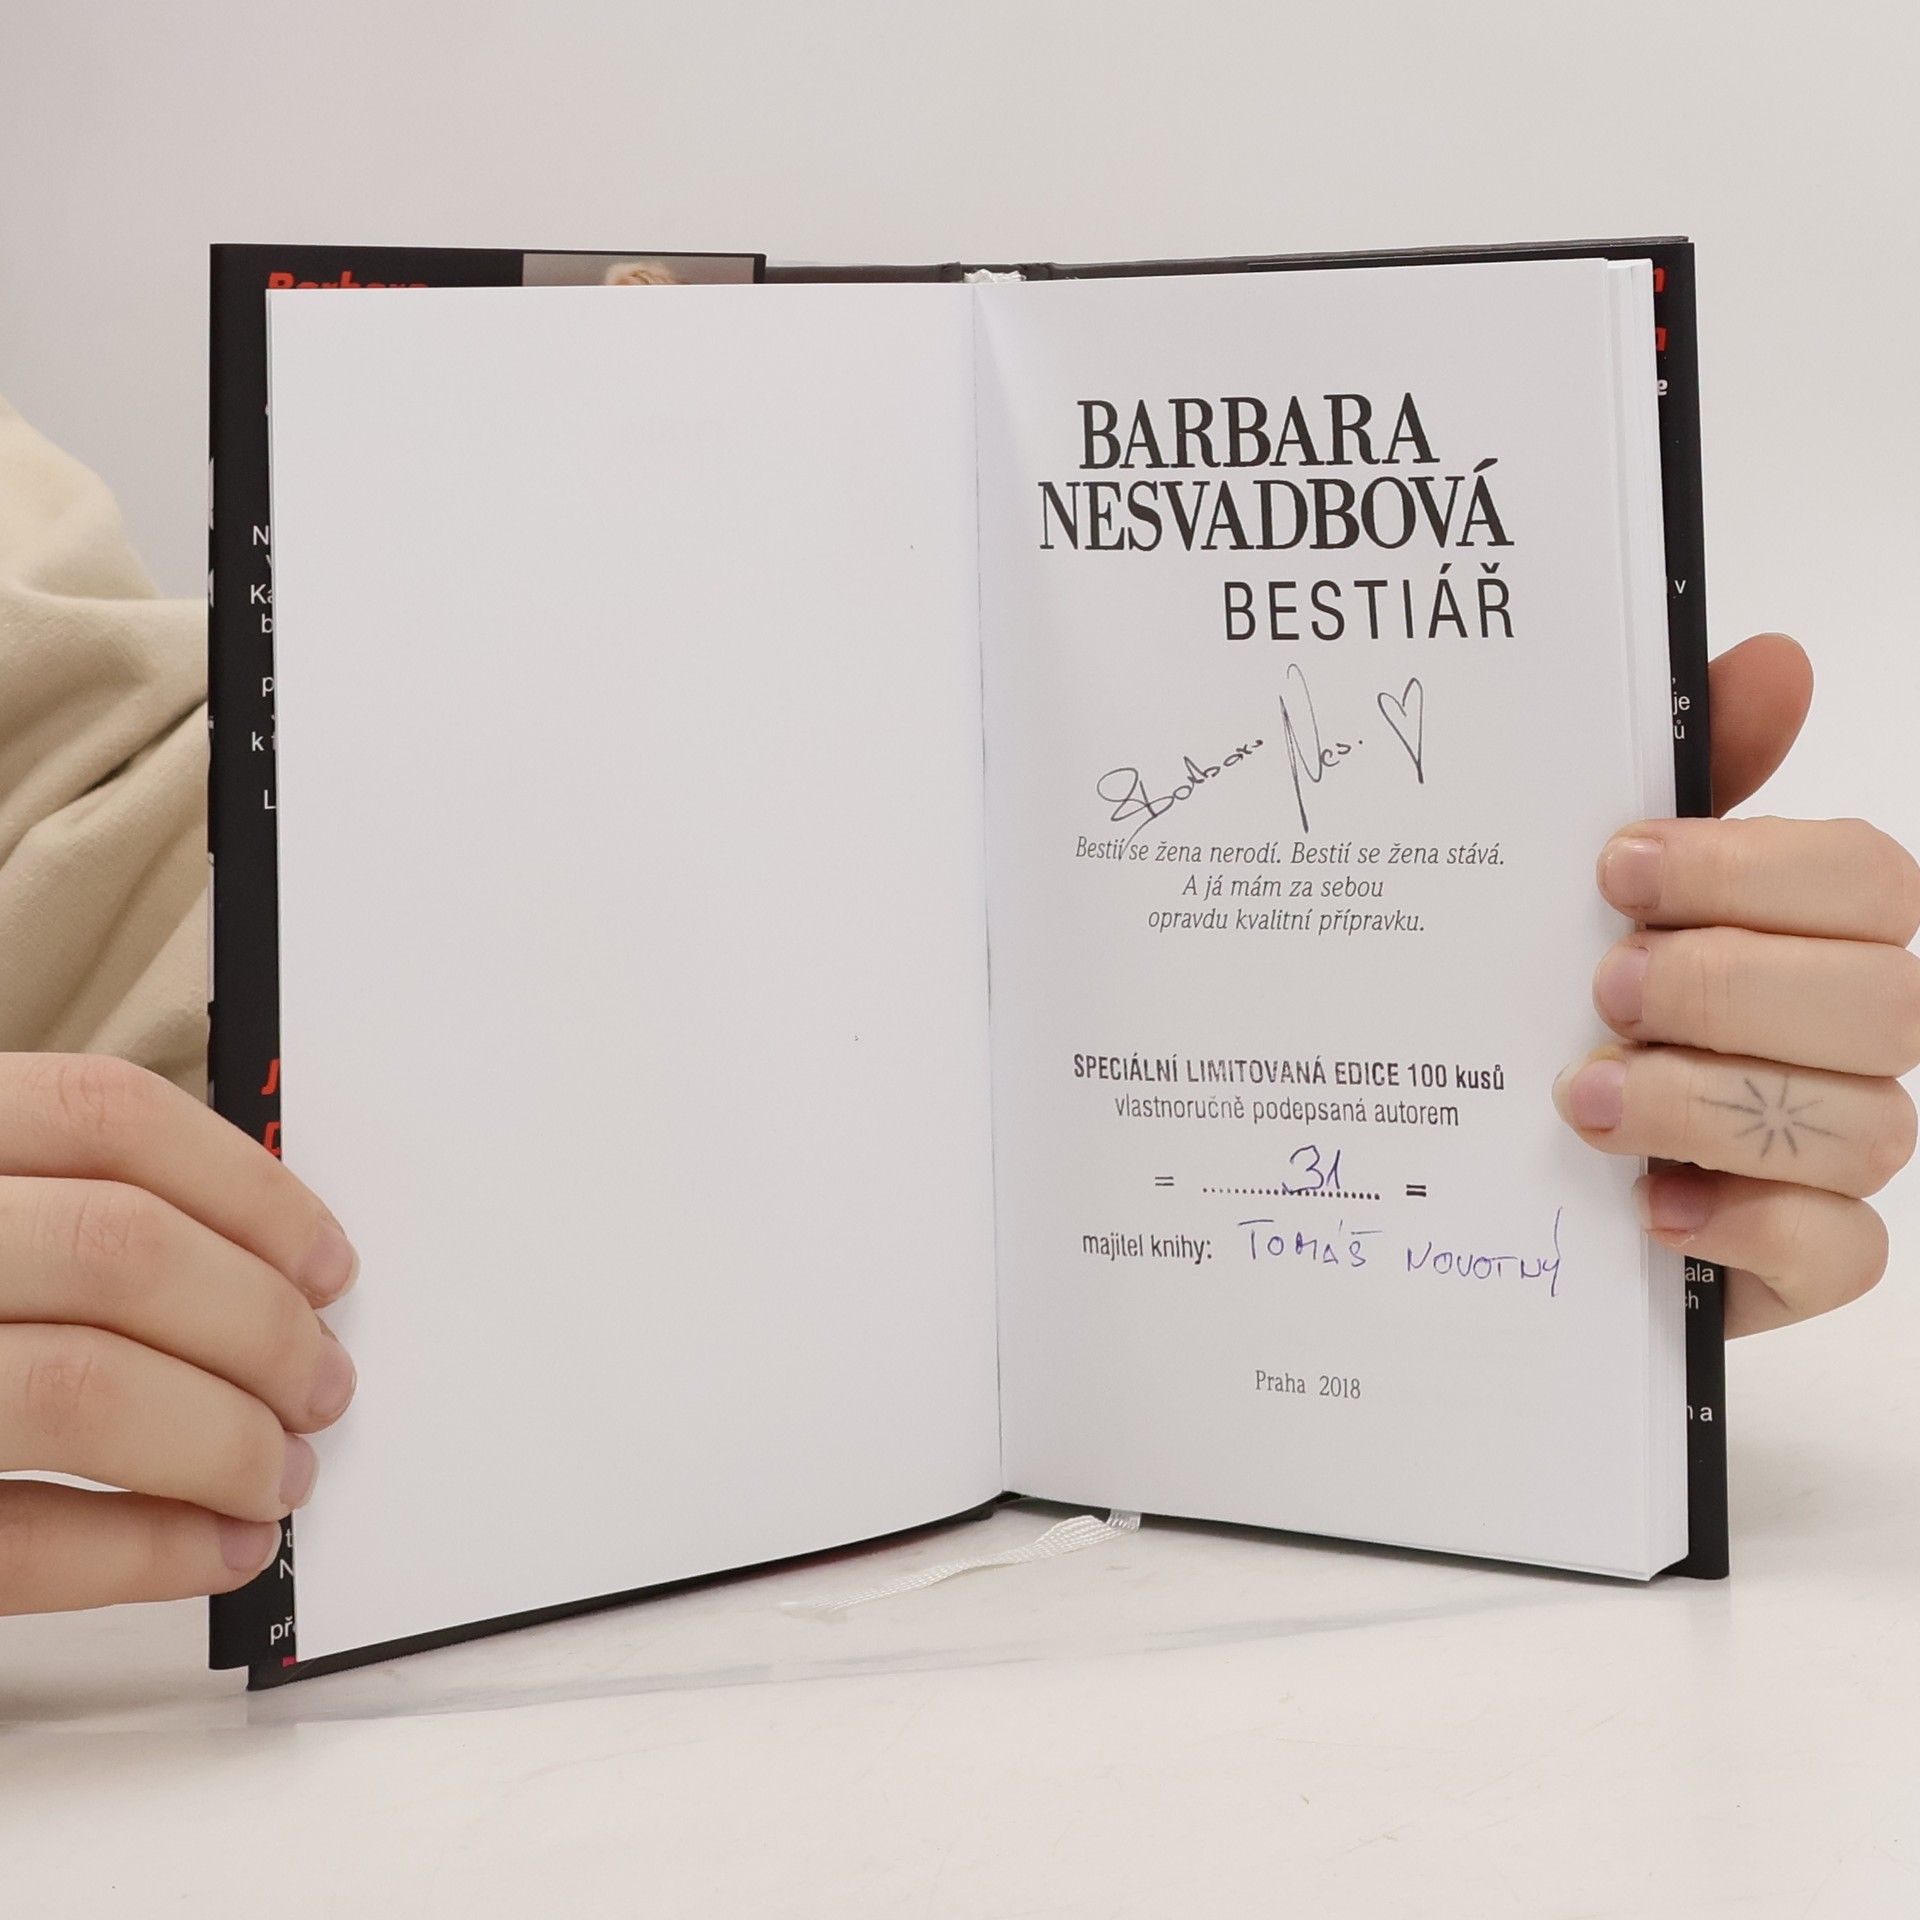 BARBARA
NESVADBOVÁ
BESTIÁŘ
Barbara Nes.
Bestií se žena nerodí. Bestií se žena stává.
A já mám za sebou
opravdu kvalitní přípravku.
SPECIÁLNÍ LIMITOVANÁ EDICE 100 kusů
vlastnoručně podepsaná autorem
= 31 =
majitel knihy: TOMÁŠ NOVOTNÝ
Praha 2018